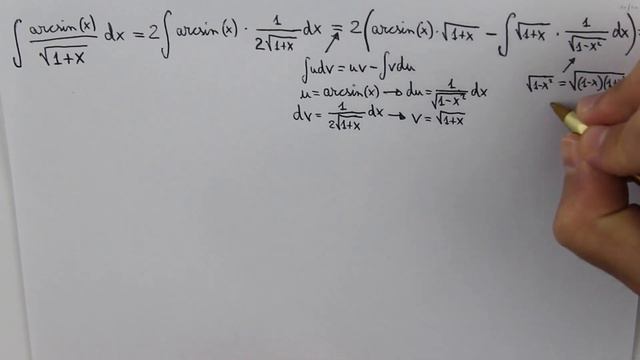 ∫ arcsin(x)/√(1+x) dx = 2∫ arcsin(x) · 1/(2√(1+x)) dx = 2(arcsin(x)·√(1+x) − ∫√(1+x) · 1/√(1-x²) dx) =
∫udv = uv − ∫vdu
√(1-x²) = √((1-x)(1+
u = arcsin(x) → du = 1/√(1-x²) dx
dv = 1/(2√(1+x)) dx → v = √(1+x)